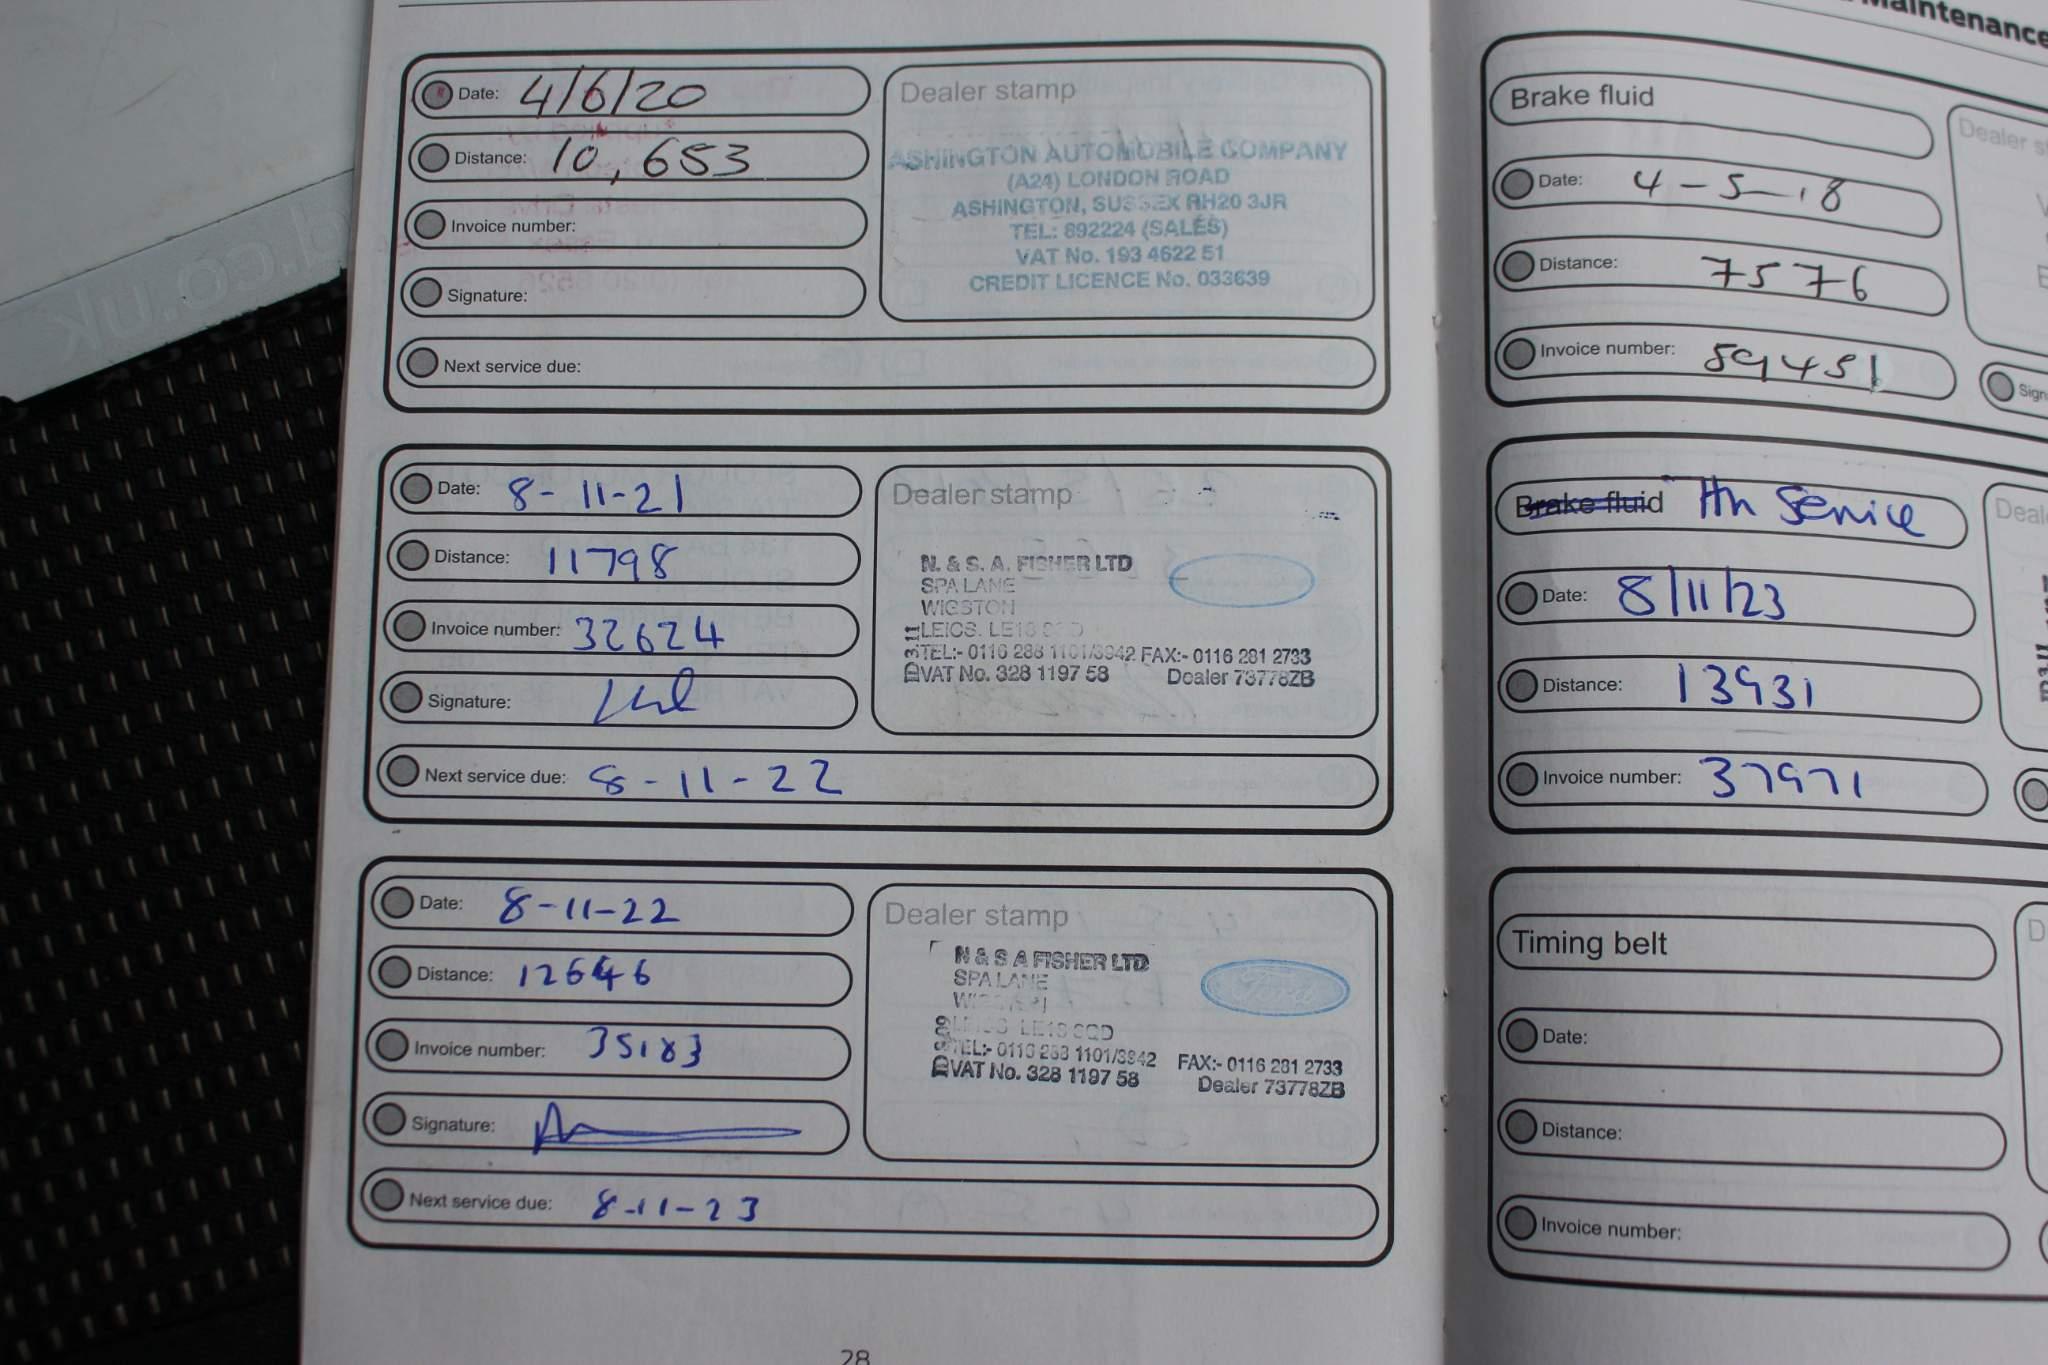 Date: 4/6/20
Distance: 10,653
Invoice number:
Signature:
Next service due:
Dealer stamp
ASHINGTON AUTOMOBILE COMPANY
(A24) LONDON ROAD
ASHINGTON, SUSSEX RH20 3JR
TEL: 892224 (SALES)
VAT No. 193 4622 51
CREDIT LICENCE No. 033639
Date: 8-11-21
Distance: 11798
Invoice number: 32624
Signature:
Next service due: 8-11-22
Dealer stamp
N. & S. A. FISHER LTD
SPA LANE
WIGSTON
LEICS.
TEL:- 0116 288 1101/3942 FAX:- 0116 281 2733
VAT No. 328 1197 58 Dealer 73778ZB
Date: 8-11-22
Distance: 12646
Invoice number: 35183
Signature:
Next service due: 8-11-23
Dealer stamp
N & S A FISHER LTD
SPA LANE
LEICS
TEL:- 0116 288 1101/3942 FAX:- 0116 281 2733
VAT No. 328 1197 58 Dealer 73778ZB
Ford
28
Maintenance
Brake fluid
Date: 4-5-18
Distance: 7576
Invoice number: 59451
Dealer
Brake fluid Service
Date: 8/11/23
Distance: 13931
Invoice number: 37971
Timing belt
Date:
Distance:
Invoice number: